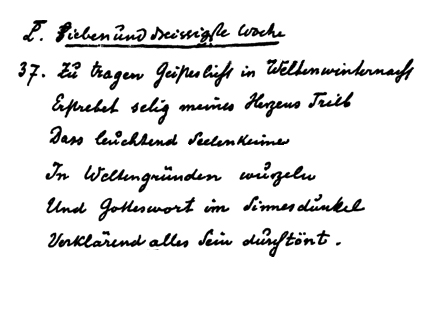 Z. Siebenunddreissigste Woche
37. Zu tragen Geisteslicht in Weltenwinternacht
Erstrebet selig meines Herzens Trieb
Dass leuchtend Seelenkeime
In Weltengründen wurzeln
Und Gotteswort im Sinnesdunkel
Verklärend alles Sein durchtönt.